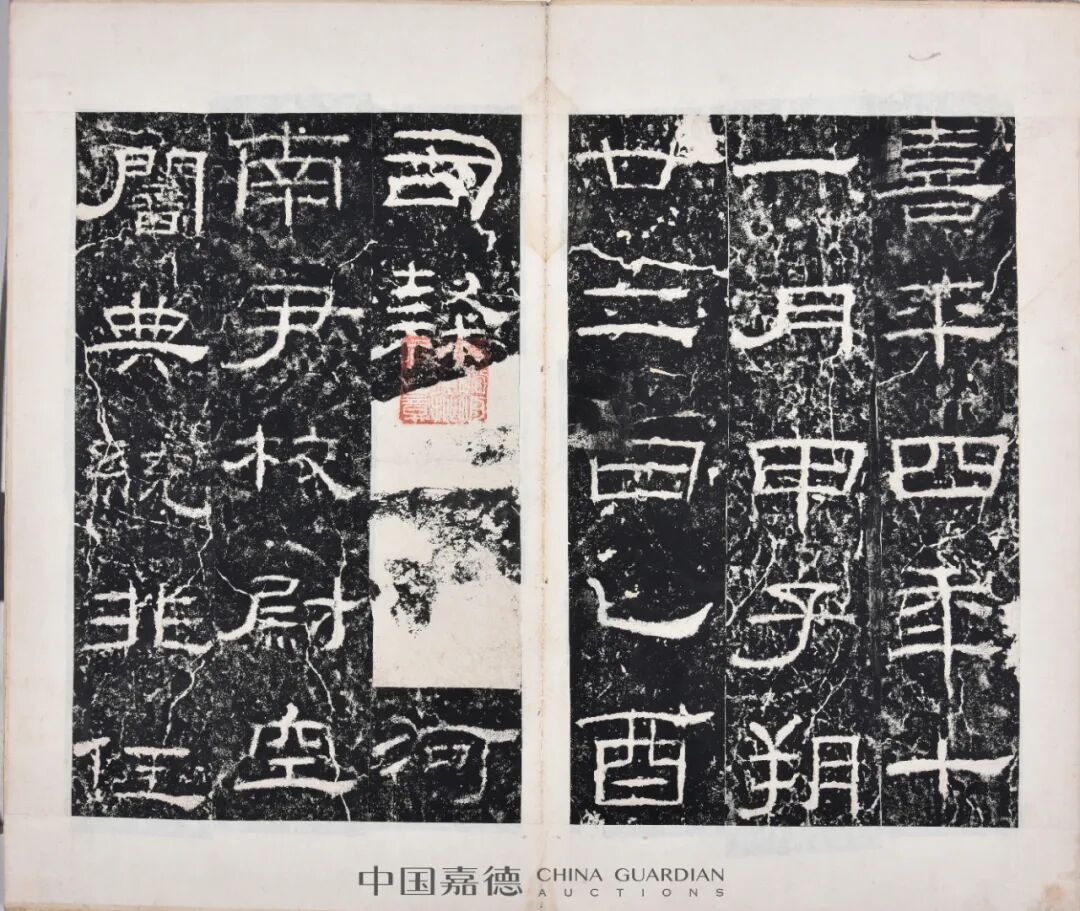 喜平四年十
一月甲子朔
廿二日乙酉
司隸河
南尹校尉空
闇典統非任
中国嘉德 CHINA GUARDIAN AUCTIONS